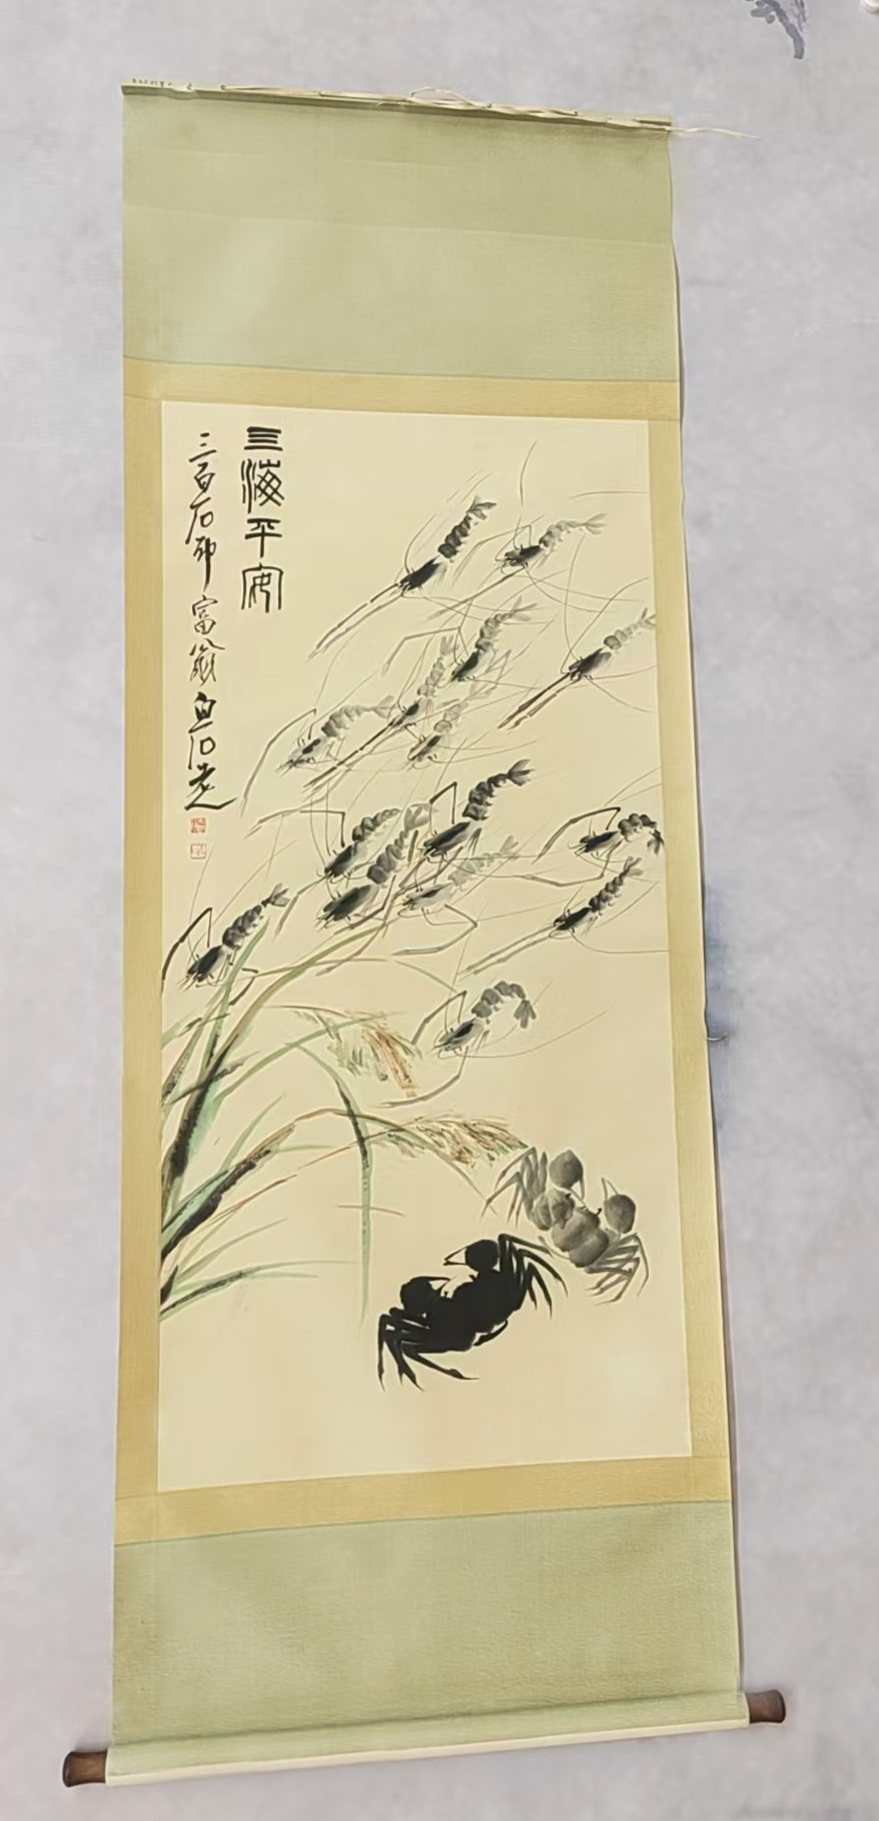 三海平安
三百石印富翁白石老人